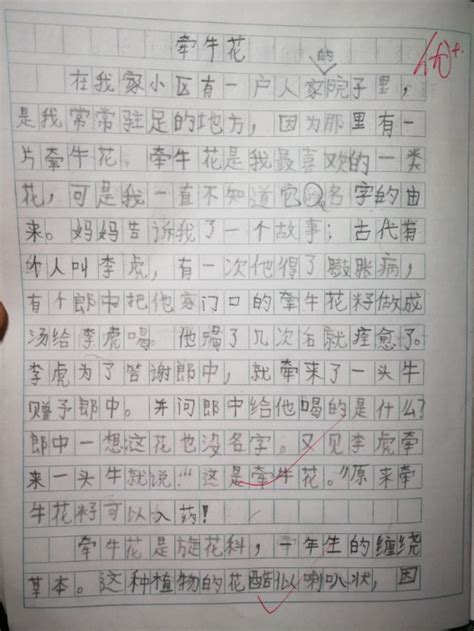 牵牛花
在我家小区有一户人家的院子里，
是我常常驻足的地方，因为那里有一
片牵牛花。牵牛花是我最喜欢的一类
花，可是我一直不知道它名字的由
来。妈妈告诉我了一个故事：古代有
个人叫李虎，有一次他得了臌胀病，
有个郎中把他家门口的牵牛花籽做成
汤给李虎喝。他喝了几次后就痊愈了。
李虎为了答谢郎中，就牵来了一头牛
赠予郎中。并问郎中给他喝的是什么？
郎中一想这花也没名字。又见李虎牵
来一头牛就说：“这是牵牛花。”原来牵
牛花籽可以入药！
牵牛花是旋花科，一年生的缠绕
草本。这种植物的花酷似喇叭状，因